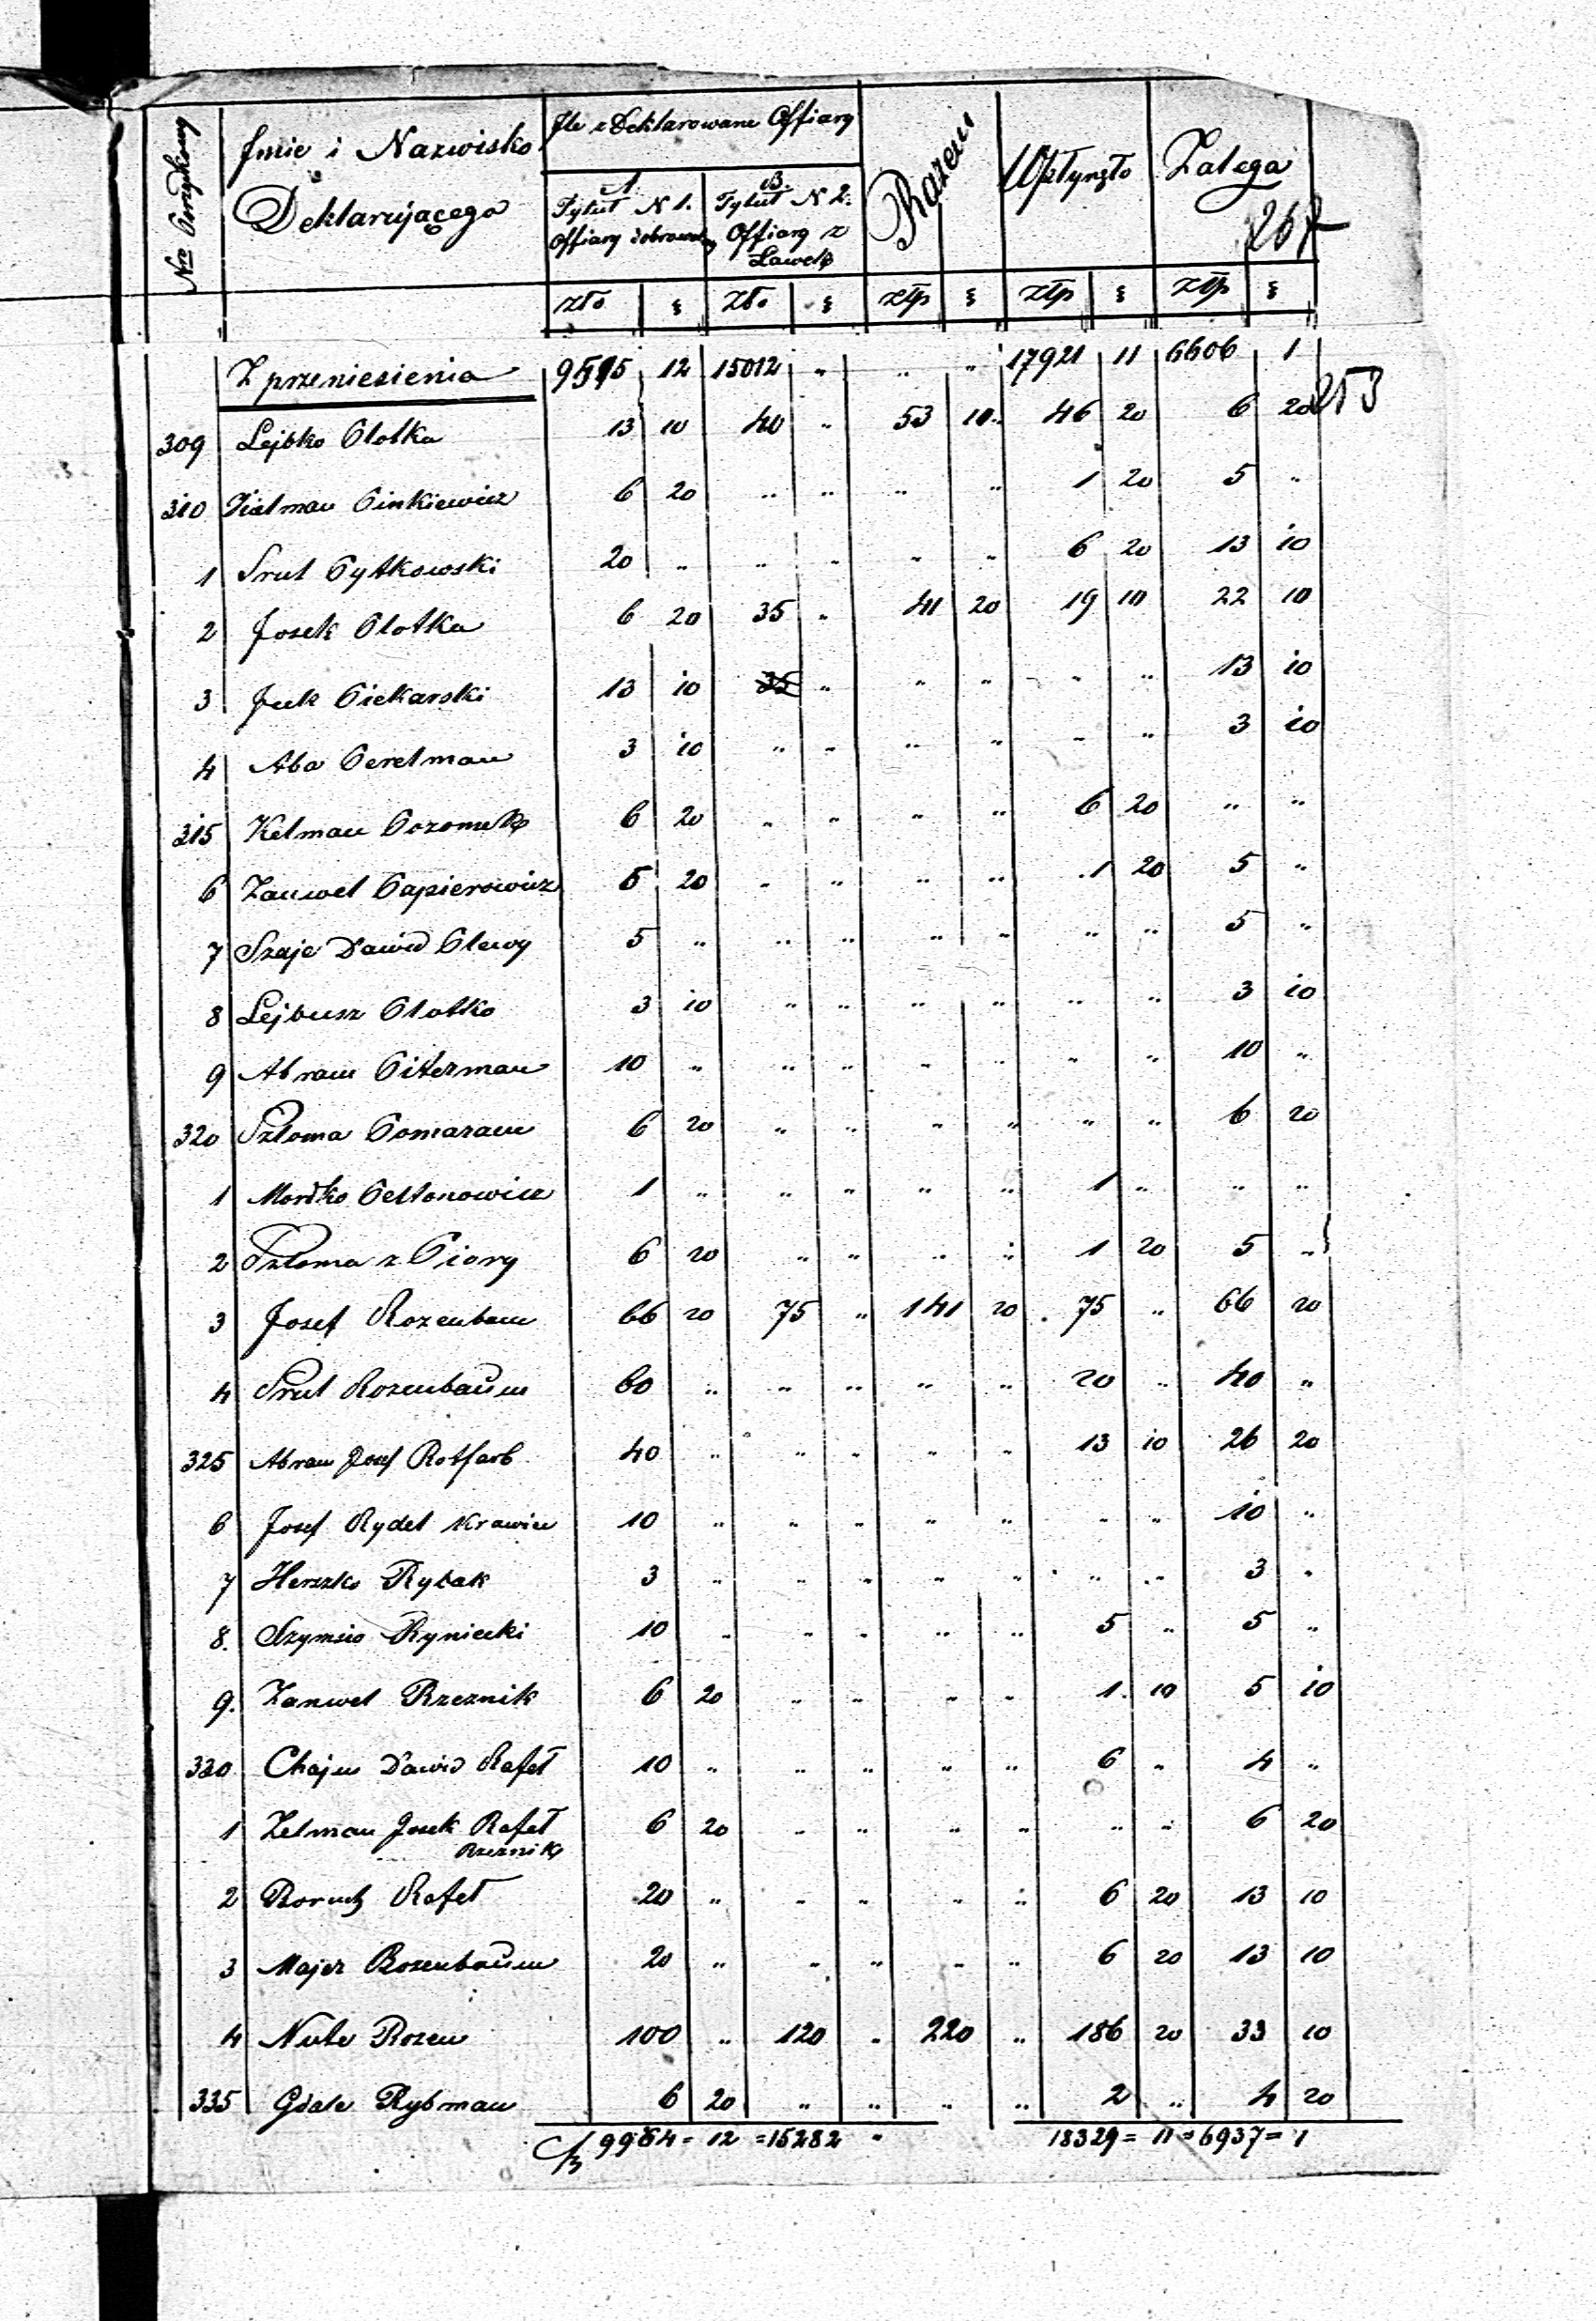 Nro Porządkowy
Imie i Nazwisko
Deklarującego
Ile zDeklarowane Offiary
A
Tytuł N 1.
Offiary dobrowolny
B.
Tytuł N 2.
Offiary z
Ławek
Razem
Wpłynęło
Zalega
267
złp § złp § złp § złp § złp §
Z przeniesienia 9515 12 15012 " " " 17921 11 6606 1
253
309 Lejbko Plotka 13 10 40 " 53 10 46 20 6 20
310 Zielman Pinkiewicz 6 20 " " " " 1 20 5 "
1 Srul Pytkowski 20 " " " " " 6 20 13 10
2 Josek Plotka 6 20 35 " 41 20 19 10 22 10
3 Jcek Piekarski 13 10 35 " " " " " 13 10
4 Aba Perelman 3 10 " " " " " " 3 10
315 Kelman Pozomek 6 20 " " " " 6 20 " "
6 Zanwel Papierowicz 6 20 " " " " 1 20 5 "
7 Szaje Dawid Plewy 5 " " " " " " " 5 "
8 Lejbusz Plotko 3 10 " " " " " " 3 10
9 Abram Piterman 10 " " " " " " " 10 "
320 Szloma Pomaranc 6 20 " " " " " " 6 20
1 Mordko Peltonowicz 1 " " " " " 1 " " "
2 Szloma z Piory 6 20 " " " " 1 20 5 "
3 Josef Rozenbam 66 20 75 " 141 20 75 " 66 20
4 Srul Rozenbaum 60 " " " " " 20 " 40 "
325 Abram Josef Rotfarb 40 " " " " " 13 10 26 20
6 Josef Rydel Krawiec 10 " " " " " " " 10 "
7 Herszko Rybak 3 " " " " " " " 3 "
8. Szymsio Ryniecki 10 " " " " " 5 " 5 "
9. Zanwel Rzeznik 6 20 " " " " 1 10 5 10
330 Chajm Dawid Rafeł 10 " " " " " 6 " 4 "
1 Zelman Josek Rafeł 6 20 " " " " " " 6 20
Rzeznik
2 Boruch Rafeł 20 " " " " " 6 20 13 10
3 Majer Rozenbaum 20 " " " " " 6 20 13 10
4 Nute Rozen 100 " 120 " 220 " 186 20 33 10
335 Gdale Rybman 6 20 " " " " 2 " 4 20
9964 = 12 = 15282 " 18329 = 11 = 6937 = 1